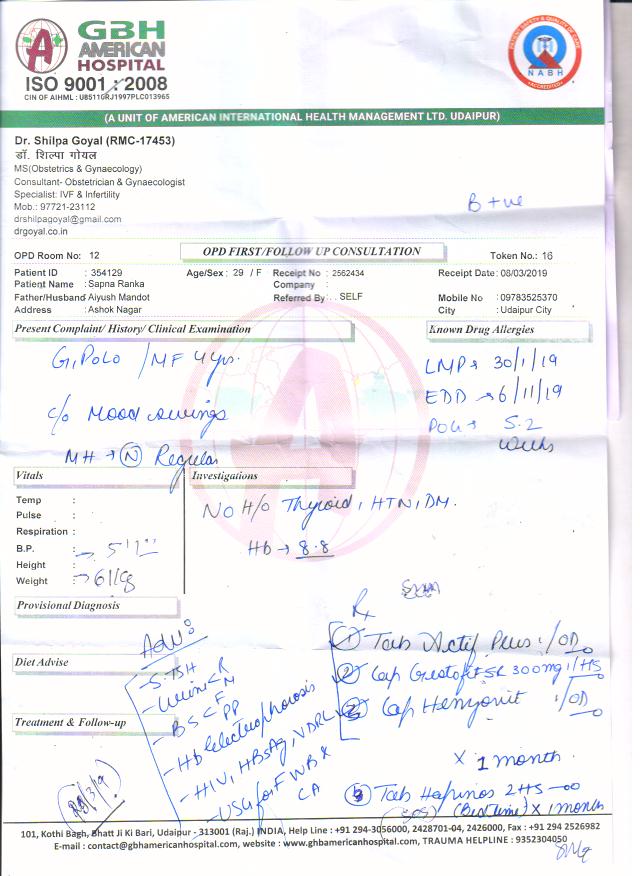 GBH
AMERICAN
HOSPITAL
ISO 9001 : 2008
CIN OF AIHML : U85110RJ1997PLC013965
PATIENT SAFETY & QUALITY OF CARE
NABH
ACCREDITED
(A UNIT OF AMERICAN INTERNATIONAL HEALTH MANAGEMENT LTD. UDAIPUR)
Dr. Shilpa Goyal (RMC-17453)
डॉ. शिल्पा गोयल
MS(Obstetrics & Gynaecology)
Consultant- Obstetrician & Gynaecologist
Specialist: IVF & Infertility
Mob.: 97721-23112
drshilpagoyal@gmail.com
drgoyal.co.in
B +ve
OPD Room No: 12
OPD FIRST/FOLLOW UP CONSULTATION
Token No.: 16
Patient ID : 354129 Age/Sex : 29 / F Receipt No : 2562434 Receipt Date: 08/03/2019
Patient Name : Sapna Ranka Company :
Father/Husband Aiyush Mandot Referred By : . SELF Mobile No : 09783525370
Address : Ashok Nagar City : Udaipur City
Present Complaint/ History/ Clinical Examination
Known Drug Allergies
G1P0L0 / MF 4 yrs.
LMP → 30/1/19
EDD → 6/11/19
c/o Mood swings
POG → 5.2
weeks
MH → N Regular
Vitals
Investigations
Temp :
Pulse :
Respiration :
B.P. :
Height :
Weight :
No H/o Thyroid, HTN, DM.
Hb → 8.8
Provisional Diagnosis
Diet Advise
Treatment & Follow-up
Adv:
- S. TSH
- Urine R M
- BS F PP
- Hb electrophorosis
- HIV, HBsAg, VDRL
- USG for FWB &
CA
Rx
1 Tab Actif Plus 1/OD
2 Cap SR 300mg 1/HS
Cap 1/OD
x 1 month
3 Tab 2HS
SOS (Bed time) x 1 month
101, Kothi Bagh, Bhatt Ji Ki Bari, Udaipur - 313001 (Raj.) INDIA, Help Line : +91 294-3056000, 2428701-04, 2426000, Fax : +91 294 2526982
E-mail : contact@gbhamericanhospital.com, website : www.gbhamericanhospital.com, TRAUMA HELPLINE : 9352304050